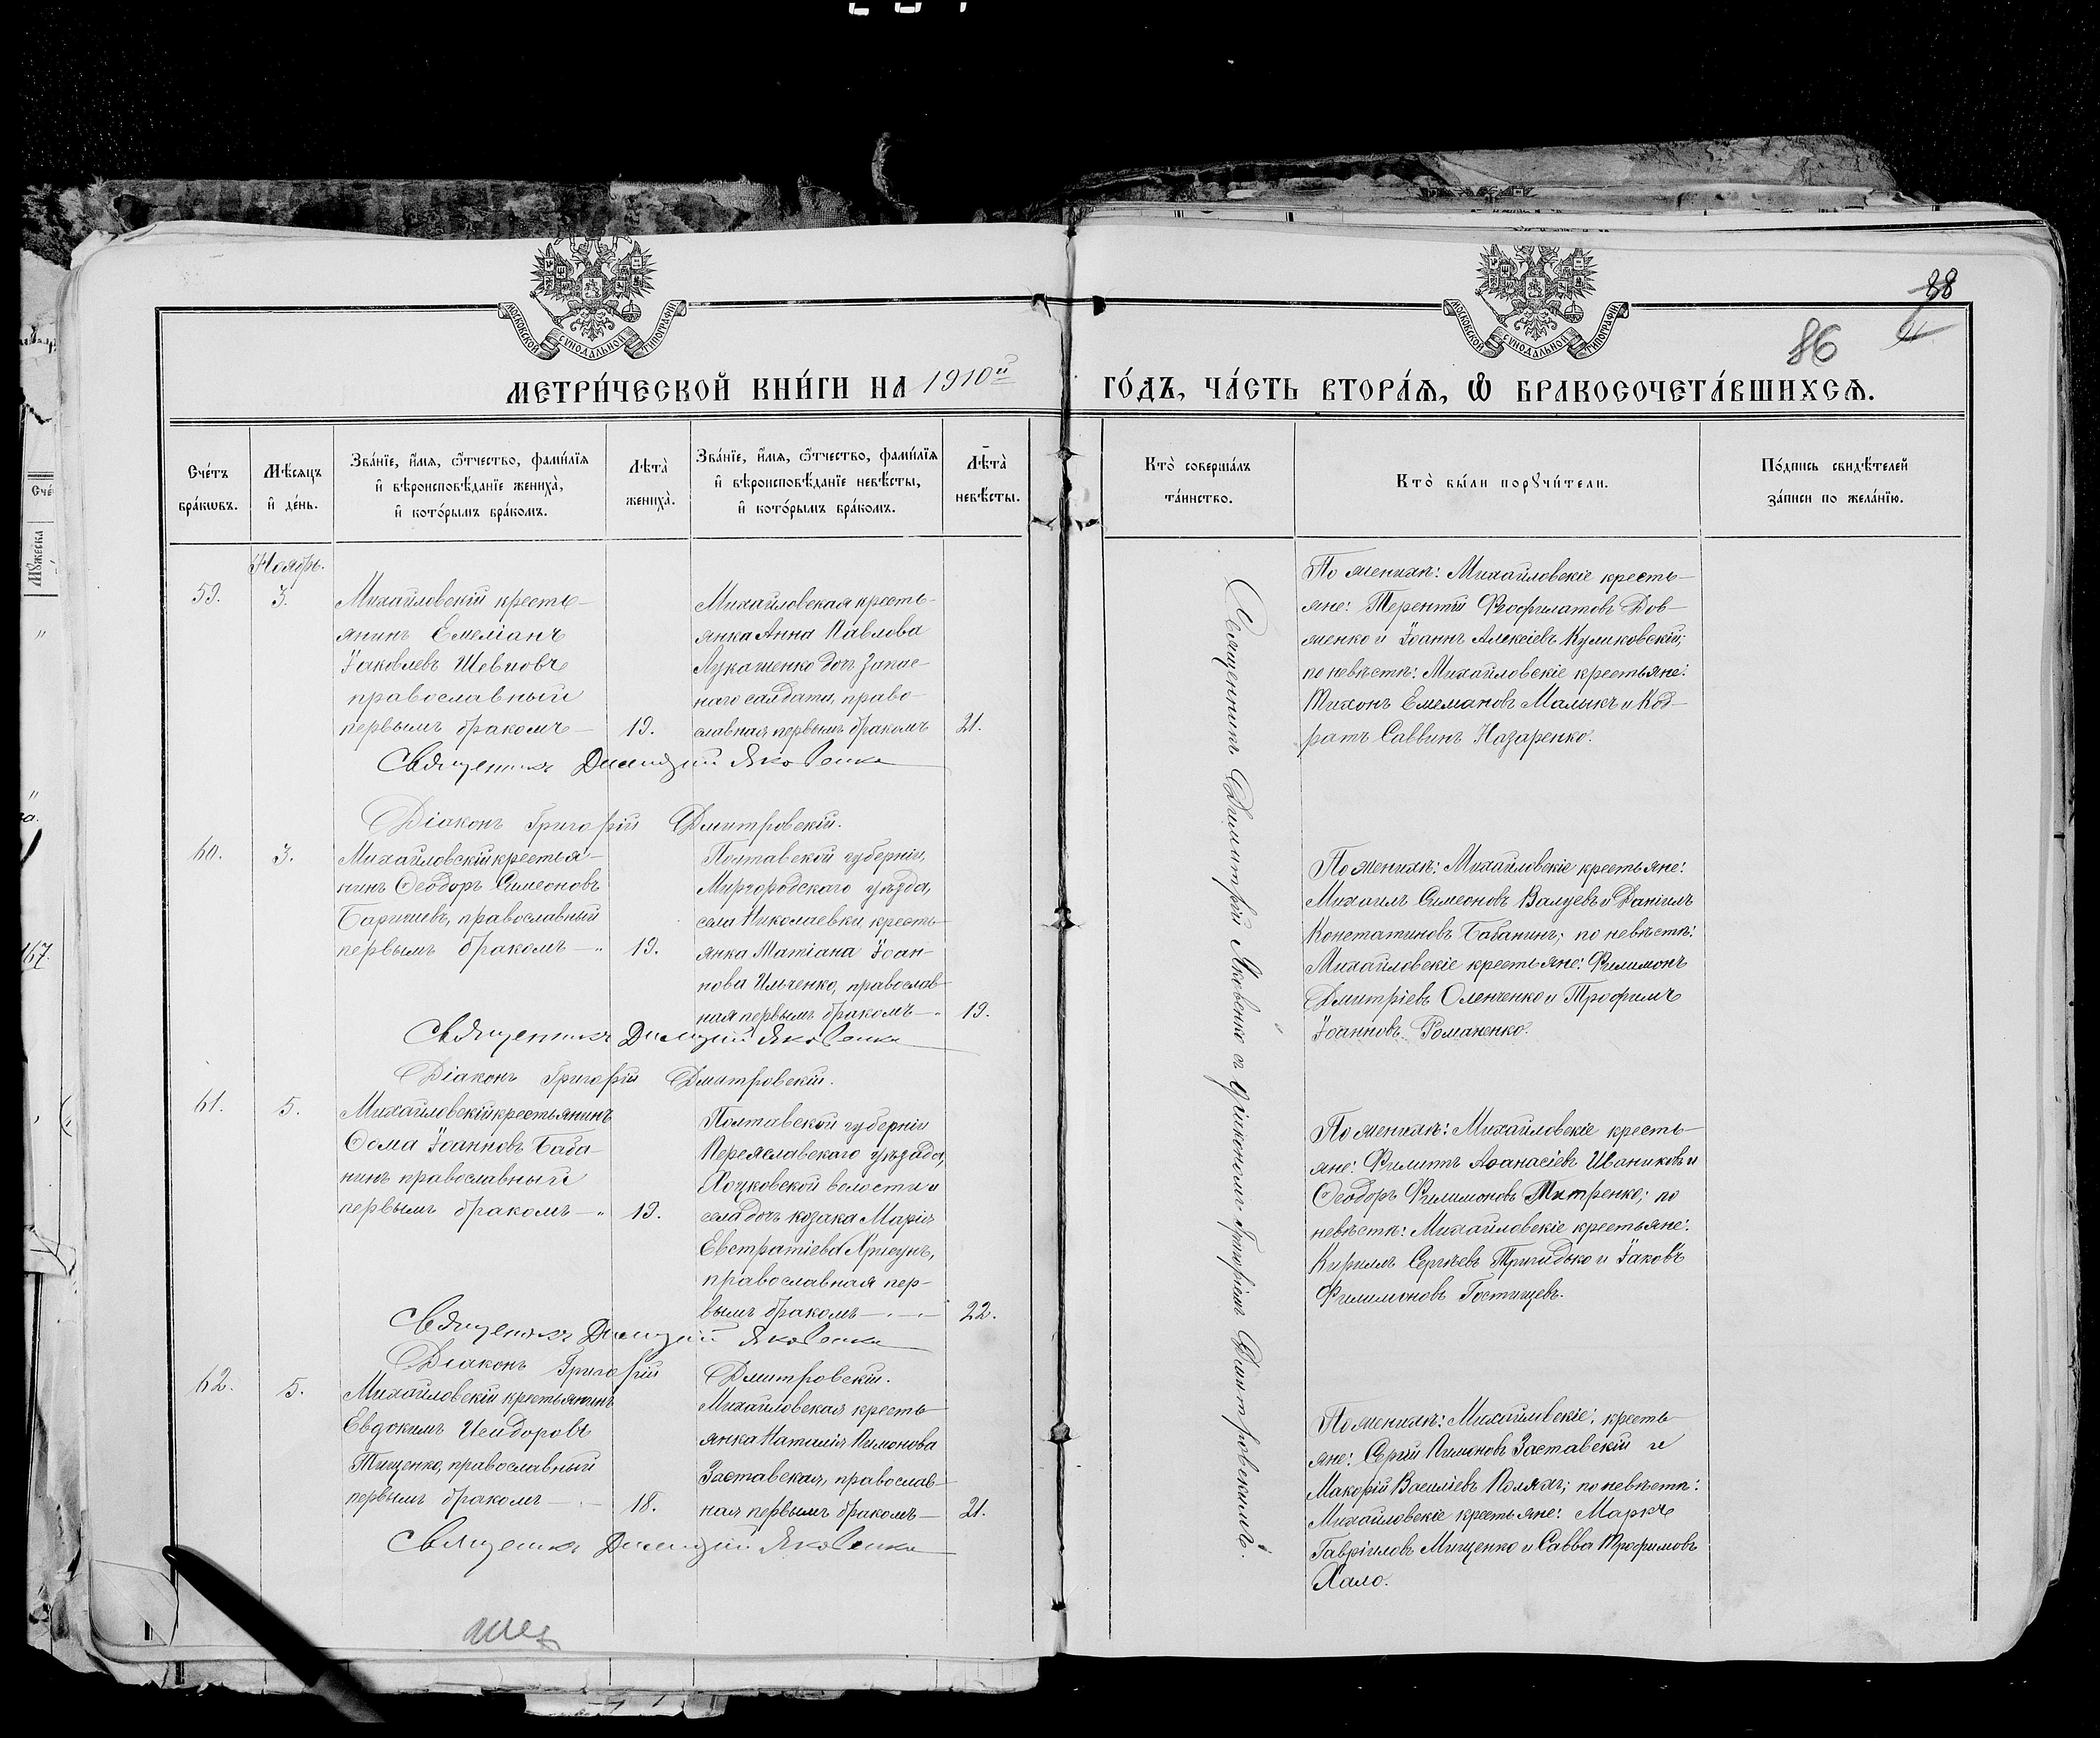 88
86
МОСКОВСКОЙ СѴНОДАЛЬНОЙ ТИПОГРАФІИ
МОСКОВСКОЙ СѴНОДАЛЬНОЙ ТИПОГРАФІИ
МЕТРИ́ЧЕСКОЙ КНИ́ГИ НА 1910й
ГО́ДЪ, ЧА́СТЬ ВТОРА́Ѧ, Ѡ҆ БРАКОСОЧЕТА́ВШИХСѦ.
Сче́тъ
бра́кѡвъ.
Мѣ́сѧцъ
и҆ де́нь.
Зва́нїе, и҆́мѧ, ѻ҆́тчество, фами́лїѧ
и҆ вѣроисповѣ́данїе жениха̀,
и҆ кото́рымъ бра́комъ.
Лѣ́та̀
жениха̀.
Зва́нїе, и҆́мѧ, ѻ҆́тчество, фами́лїѧ
и҆ вѣроисповѣ́данїе невѣ́сты,
и҆ кото́рымъ бра́комъ.
Лѣ́та̀
невѣ́сты.
Кто̀ соверша́лъ
та́инство.
Кто̀ бы́ли порꙋчи́тели.
По́дпись свидѣ́телей
за́писи по жела́нїю.
Ноябрь.
59.
3.
Михайловскій кресть-
янинъ Емеліанъ
Іаковлевъ Шевцовъ
православный
первымъ бракомъ-
19.
Михайловская кресть-
янка Анна Павлова
Лукашенко дочь запас-
наго солдата, право-
славная первымъ бракомъ
21.
По женихѣ: Михайловскіе кресть-
яне: Терентій Феофилатовъ Дов-
женко и Іоаннъ Алексіевъ Куликовскій;
по невѣстѣ: Михайловскіе крестьяне:
Тихонъ Емеліановъ Малыкъ и Код-
ратъ Саввинъ Назаренко.
Священникъ Димитрій Яковенко
Діаконъ Григорій Дмитровскій.
60.
3.
Михайловскій крестья-
нинъ Ѳеодоръ Симеоновъ
Барышевъ, православный
первымъ бракомъ-"
19.
Полтавской губерніи,
Миргородскаго уѣзда,
села Николаевки, кресть-
янка Татіана Іоан-
нова Ильченко, православ-
ная первымъ бракомъ-
19.
По женихѣ: Михайловскіе крестьяне:
Михаилъ Симеоновъ Валуевъ и Даніилъ
Констатиновъ Бабанинъ; по невѣстѣ:
Михайловскіе крестьяне: Филимонъ
Дмитріевъ Оленченко и Трофимъ
Іоанновъ Романенко.
Священникъ Димитрій Яковенко
Діаконъ Григорій Дмитровскій.
61.
5.
Михайловскій крестьянинъ
Ѳома Іоанновъ Баба-
нинъ православный
первымъ бракомъ-"
19.
Полтавской губерніи
Переяславскаго уѣзда,
Хоцковской волости и
села дочь козака Марія
Евстратіева Хригунъ,
православная пер-
вымъ бракомъ - . -
22.
По женихѣ: Михайловскіе кресть-
яне: Филиппъ Аѳанасіевъ Иваниковъ и
Ѳеодоръ Филимоновъ Титренко; по
невѣстѣ: Михайловскіе крестьяне:
Кириллъ Сергѣевъ Тригидько и Іаковъ
Филимоновъ Гостищевъ.
Священникъ Димитрій Яковенко
Діаконъ Григорій Дмитровскій.
62.
5.
Михайловскій крестьянинъ
Евдокимъ Исидоровъ
Тищенко, православный
первымъ бракомъ-
18.
Михайловская кресть-
янка Наталія Пимонова
Заставская, православ-
ная первымъ бракомъ-
21.
По женихѣ: Михайлівскіе: кресть-
яне: Сергій Пимоновъ Заставскій и
Макорій Василіевъ Поляхъ; по невѣстѣ:
Михайловскіе крестьяне: Маркъ
Гавріиловъ Мищенко и Савва Трофимовъ
Хало.
Священникъ Димитрій Яковенко
Священникъ Димитрій Яковенко съ діакономъ Григоріемъ Дмитровскимъ.
Сче
Мꙋжеска
167.